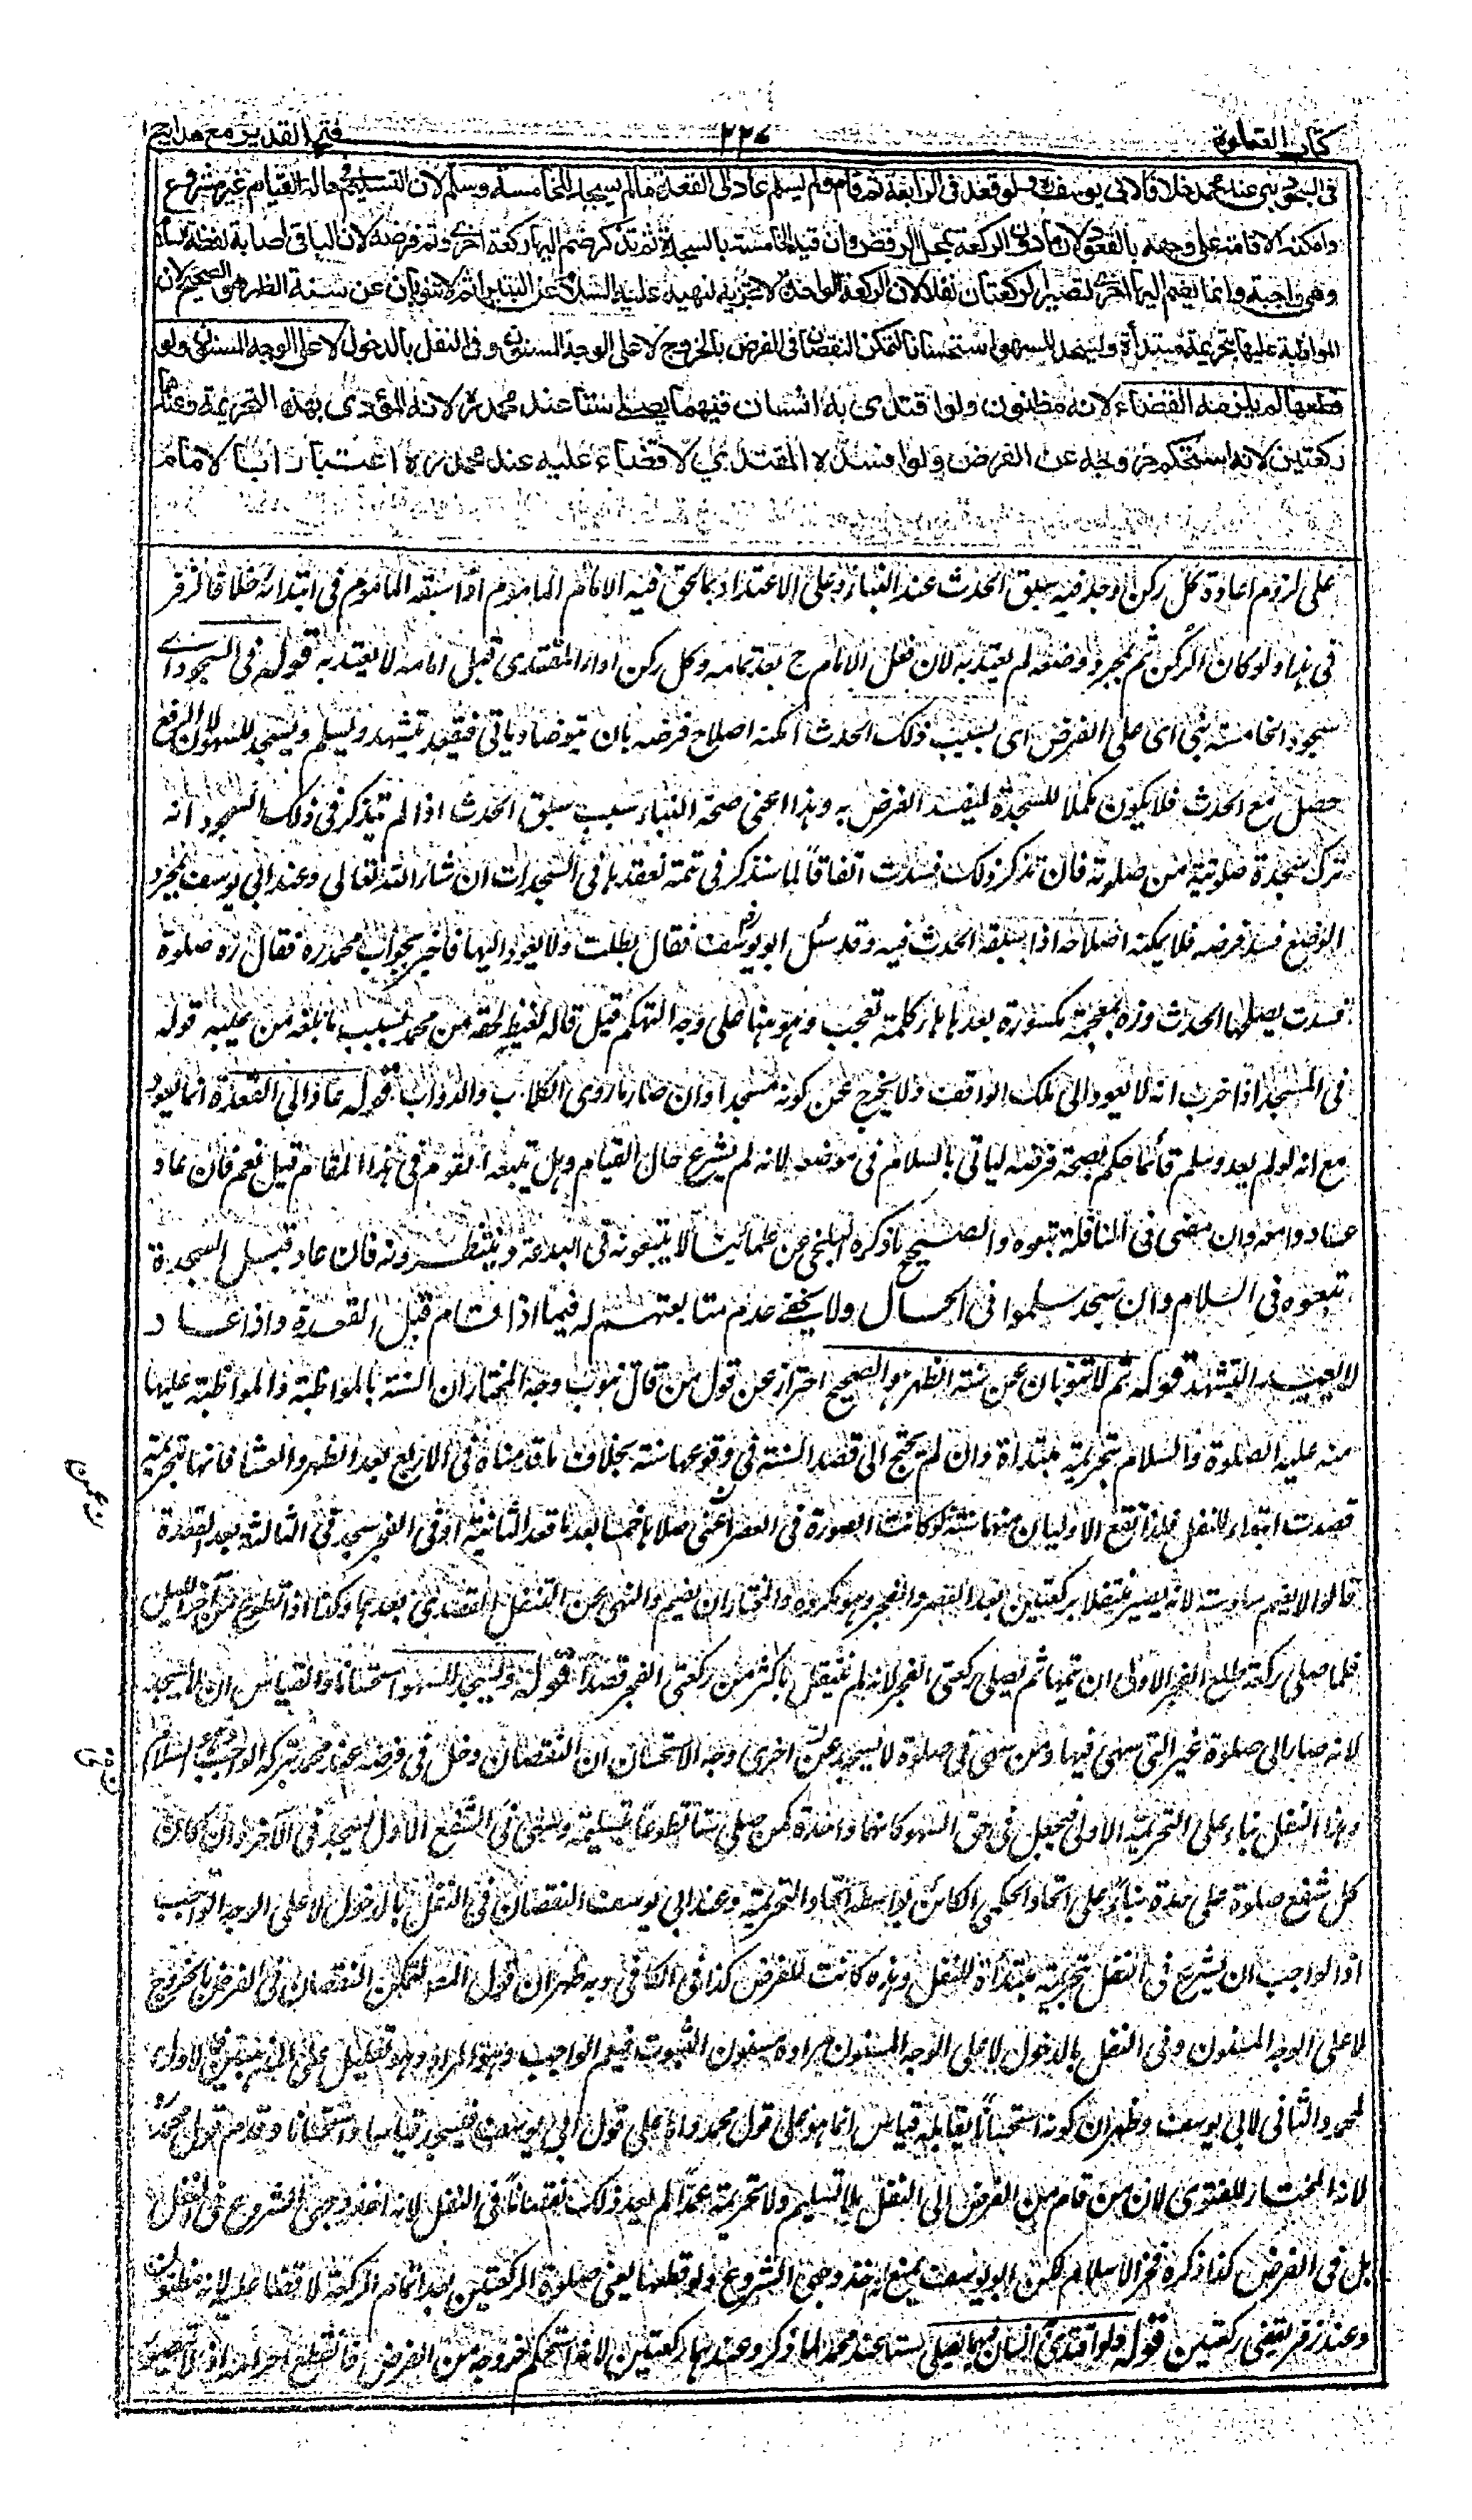 كتاب الصلوة
٢٢٧
فتح القدير مع هدايه
فى السجود بنى عند محمد خلافا لابى يوسف ولو قعد فى الرابعة ثم قام ولم يسلم عاد الى القعدة ما لم يسجد للخامسة وسلم لان التسليم فى حالة القيام غير مشروع
وامكنه الاقامة على وجهه بالقعود لان ما دون الركعة بمحل الرفض وان قيد الخامسة بالسجدة ثم تذكر ضم اليها ركعة اخرى وتم فرضه لان الباقى اصابة لفظة السلام
وهى واجبة وانما يضم اليها اخرى لتصير الركعتان نفلا لان الركعة الواحدة لا تجزيه لنهيه عليه السلام عن البتيراء ثم لا تنوبان عن سنة الظهر هو الصحيح لان
المواظبة عليها بتحريمة مبتدأة وليسجد للسهو استحسانا لتمكن النقصان فى الفرض بالخروج لا على الوجه المسنون وفى النفل بالدخول لا على الوجه المسنون ولو
قطعها لم يلزمه القضاء لانه مظنون ولو اقتدى به انسان فيهما يصلى ستا عند محمد رح لانه المؤدى بهذه التحريمة وعندهما
ركعتين لانه استحكم خروجه عن الفرض ولو افسده المقتدى لا قضاء عليه عند محمد رح اعتبارا بالامام
على لزوم اعادة كل ركن وجد فيه سبق الحدث عند البناء وعلى الاعتداد بما لحق فيه الامام المأموم اذا سبقه المأموم فى ابتدائه خلافا لزفر
فى هذا ولو كان الركن تم بمجرد وضعه لم يعتد به لان فعل الامام ح بعد تمامه وكل ركن اداه المقتدى قبل امامه لا يعتد به قوله فى السجود اى
سجود الخامسة بنى اى على الفرض اى بسبب ذلك الحدث امكنه اصلاح فرضه بان يتوضأ ويأتى فيقعد ويتشهد ويسلم ويسجد للسهو لان الرفع
حصل مع الحدث فلا يكون مكملا للسجدة ليفسد الفرض به وهذا اعنى صحة البناء بسبب سبق الحدث اذا لم يتذكر فى ذلك السجود انه
ترك سجدة صلوتية من صلوته فان تذكر ذلك فسدت اتفاقا لما سنذكر فى تتمة نعقدها فى السجدات ان شاء الله تعالى وعند ابى يوسف بمجرد
الوضع فسد فرضه فلا يمكنه اصلاحه اذا سبقه الحدث فيه وقد سئل ابو يوسف فقال بطلت ولا يعود اليها فاخبر بجواب محمد ره فقال زه صلوة
فسدت يصلحها الحدث وزه بمعجمة مكسورة بعدها هاء كلمة تعجب وهو هنا على وجه التهكم قيل قاله لغيظ لحقه من محمد بسبب ما بلغه من عيبه قوله
فى المسجد اذا خرب انه لا يعود الى ملك الواقف ولا يخرج عن كونه مسجدا وان صار ماوى الكلاب والدواب قوله عاد الى القعدة انما يعود
مع انه لو لم يعد وسلم قائما حكم بصحة فرضه لياتى بالسلام فى موضعه لانه لم يشرع حال القيام وهل يتبعه القوم فى هذا المقام قيل نعم فان عاد
عادوا معه وان مضى فى النافلة تبعوه والصحيح ما ذكره البلخى عن علمائنا لا يتبعونه فى البدعة وينتظرونه فان عاد قبل السجدة
تبعوه فى السلام وان سجد سلموا فى الحال ولا يخفى عدم متابعتهم له فيما اذا قام قبل القعدة واذا عاد
لا يعيد التشهد قوله ثم لا تنوبان عن سنة الظهر هو الصحيح احتراز عن قول من قال تنوب وجه المختار ان السنة بالمواظبة والمواظبة عليها
منه عليه الصلوة والسلام بتحريمة مبتدأة وان لم يحتج الى قصد السنة فى وقوعها سنة بخلاف ما قدمناه فى الاربع بعد الظهر والعشاء فانها بتحريمة
قصدت ابتداء للنفل فلذا تقع الاوليان منها سنة ولو كانت الصورة فى العصر اعنى صلاها خمسا بعد ما قعد الثانية او فى الفجر سجد فى الثالثة بعد القعدة
قالوا لا يضم سادسة لانه يصير متنفلا بركعتين بعد العصر والفجر وهو مكروه والمختار ان يضم والنهى عن التنفل القصدى بعدهما وكذا اذا تطوع من آخر الليل
فلما صلى ركعة طلع الفجر الاولى ان يتمها ثم يصلى ركعتى الفجر لانه لم يتنفل باكثر من ركعتى الفجر قصدا قوله ويسجد للسهو استحسانا والقياس ان لا يسجد
لانه صار الى صلوة غير التى سهى فيها ومن سهى فى صلوة لا يسجد عن اخرى وجه الاستحسان ان النقصان دخل فى فرضه عند محمد بتركه الواجب وهو السلام
وهذا النفل بناء على التحريمة الاولى فيجعل فى حق السهو كانها واحدة كمن صلى ستا تطوعا بتسليمة وسهى فى الشفع الاول يسجد فى الآخر وان كان
كل شفع صلوة على حدة بناء على اتحاد الحكمى الكائن بواسطة اتحاد التحريمة وعند ابى يوسف النقصان فى النفل بالدخول لا على الوجه الواجب
اذ الواجب ان يشرع فى النفل بتحريمة مبتدأة للنفل وهذه كانت للفرض كذا فى الكافى وبه ظهر ان قول المص لتمكن النقصان فى الفرض بالخروج
لا على الوجه المسنون وفى النفل بالدخول لا على الوجه المسنون مراده مسنون الثبوت فيعم الواجب وهو المراد وهو تعليل على المذهبين الاول
لمحمد والثانى لابى يوسف وظهر ان كونه استحسانا يقابله قياس انما هو على قول محمد واما على قول ابى يوسف فيسجد قياسا واستحسانا وقدم قول محمد
لانه المختار للفتوى لان من قام من الفرض الى النفل بلا تسليم ولا تحريمة عمدا لم يعد ذلك نقصانا فى النفل لانه احد وجهى الشروع فى النفل
بل فى الفرض كذا ذكره فخر الاسلام لكن ابو يوسف يمنع انه احد وجهى الشروع ولو قطعها يعنى صلوة الركعتين بعد اتمام الركعة لا قضاء عليه لانه مظنون
وعند زفر يقضى ركعتين قوله ولو اقتدى انسان فيهما يصلى ستا عند محمد لما ذكر وعندهما ركعتين لانه استحكم خروجه من الفرض فانقطع احرامه